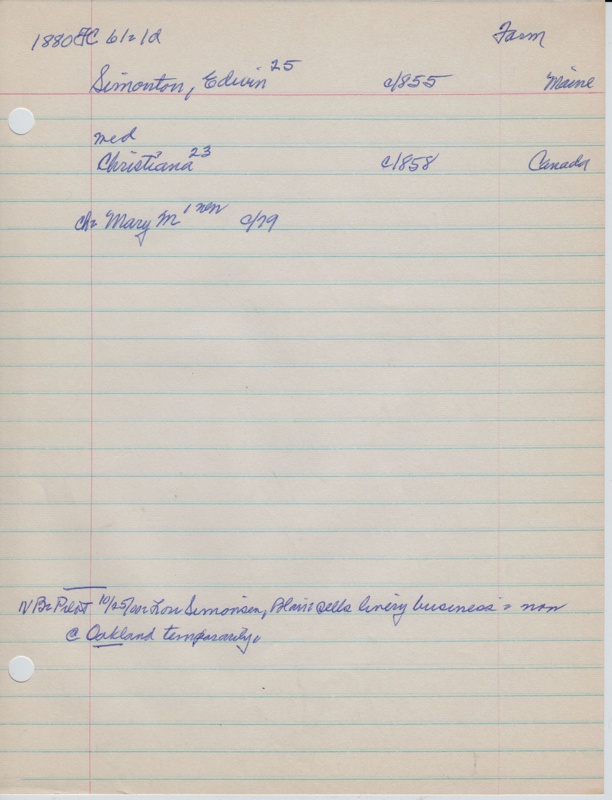 1880 FC 61=12 Farm
Simonton, Edwin 25 c/855 Maine
med
Christiana 23 c/858 Canada
ch= Mary M 1 non c/79
NB= Pilot 10/25/ Lou Simonsen, Blair: sells livery business = now
@ Oakland temporarily.